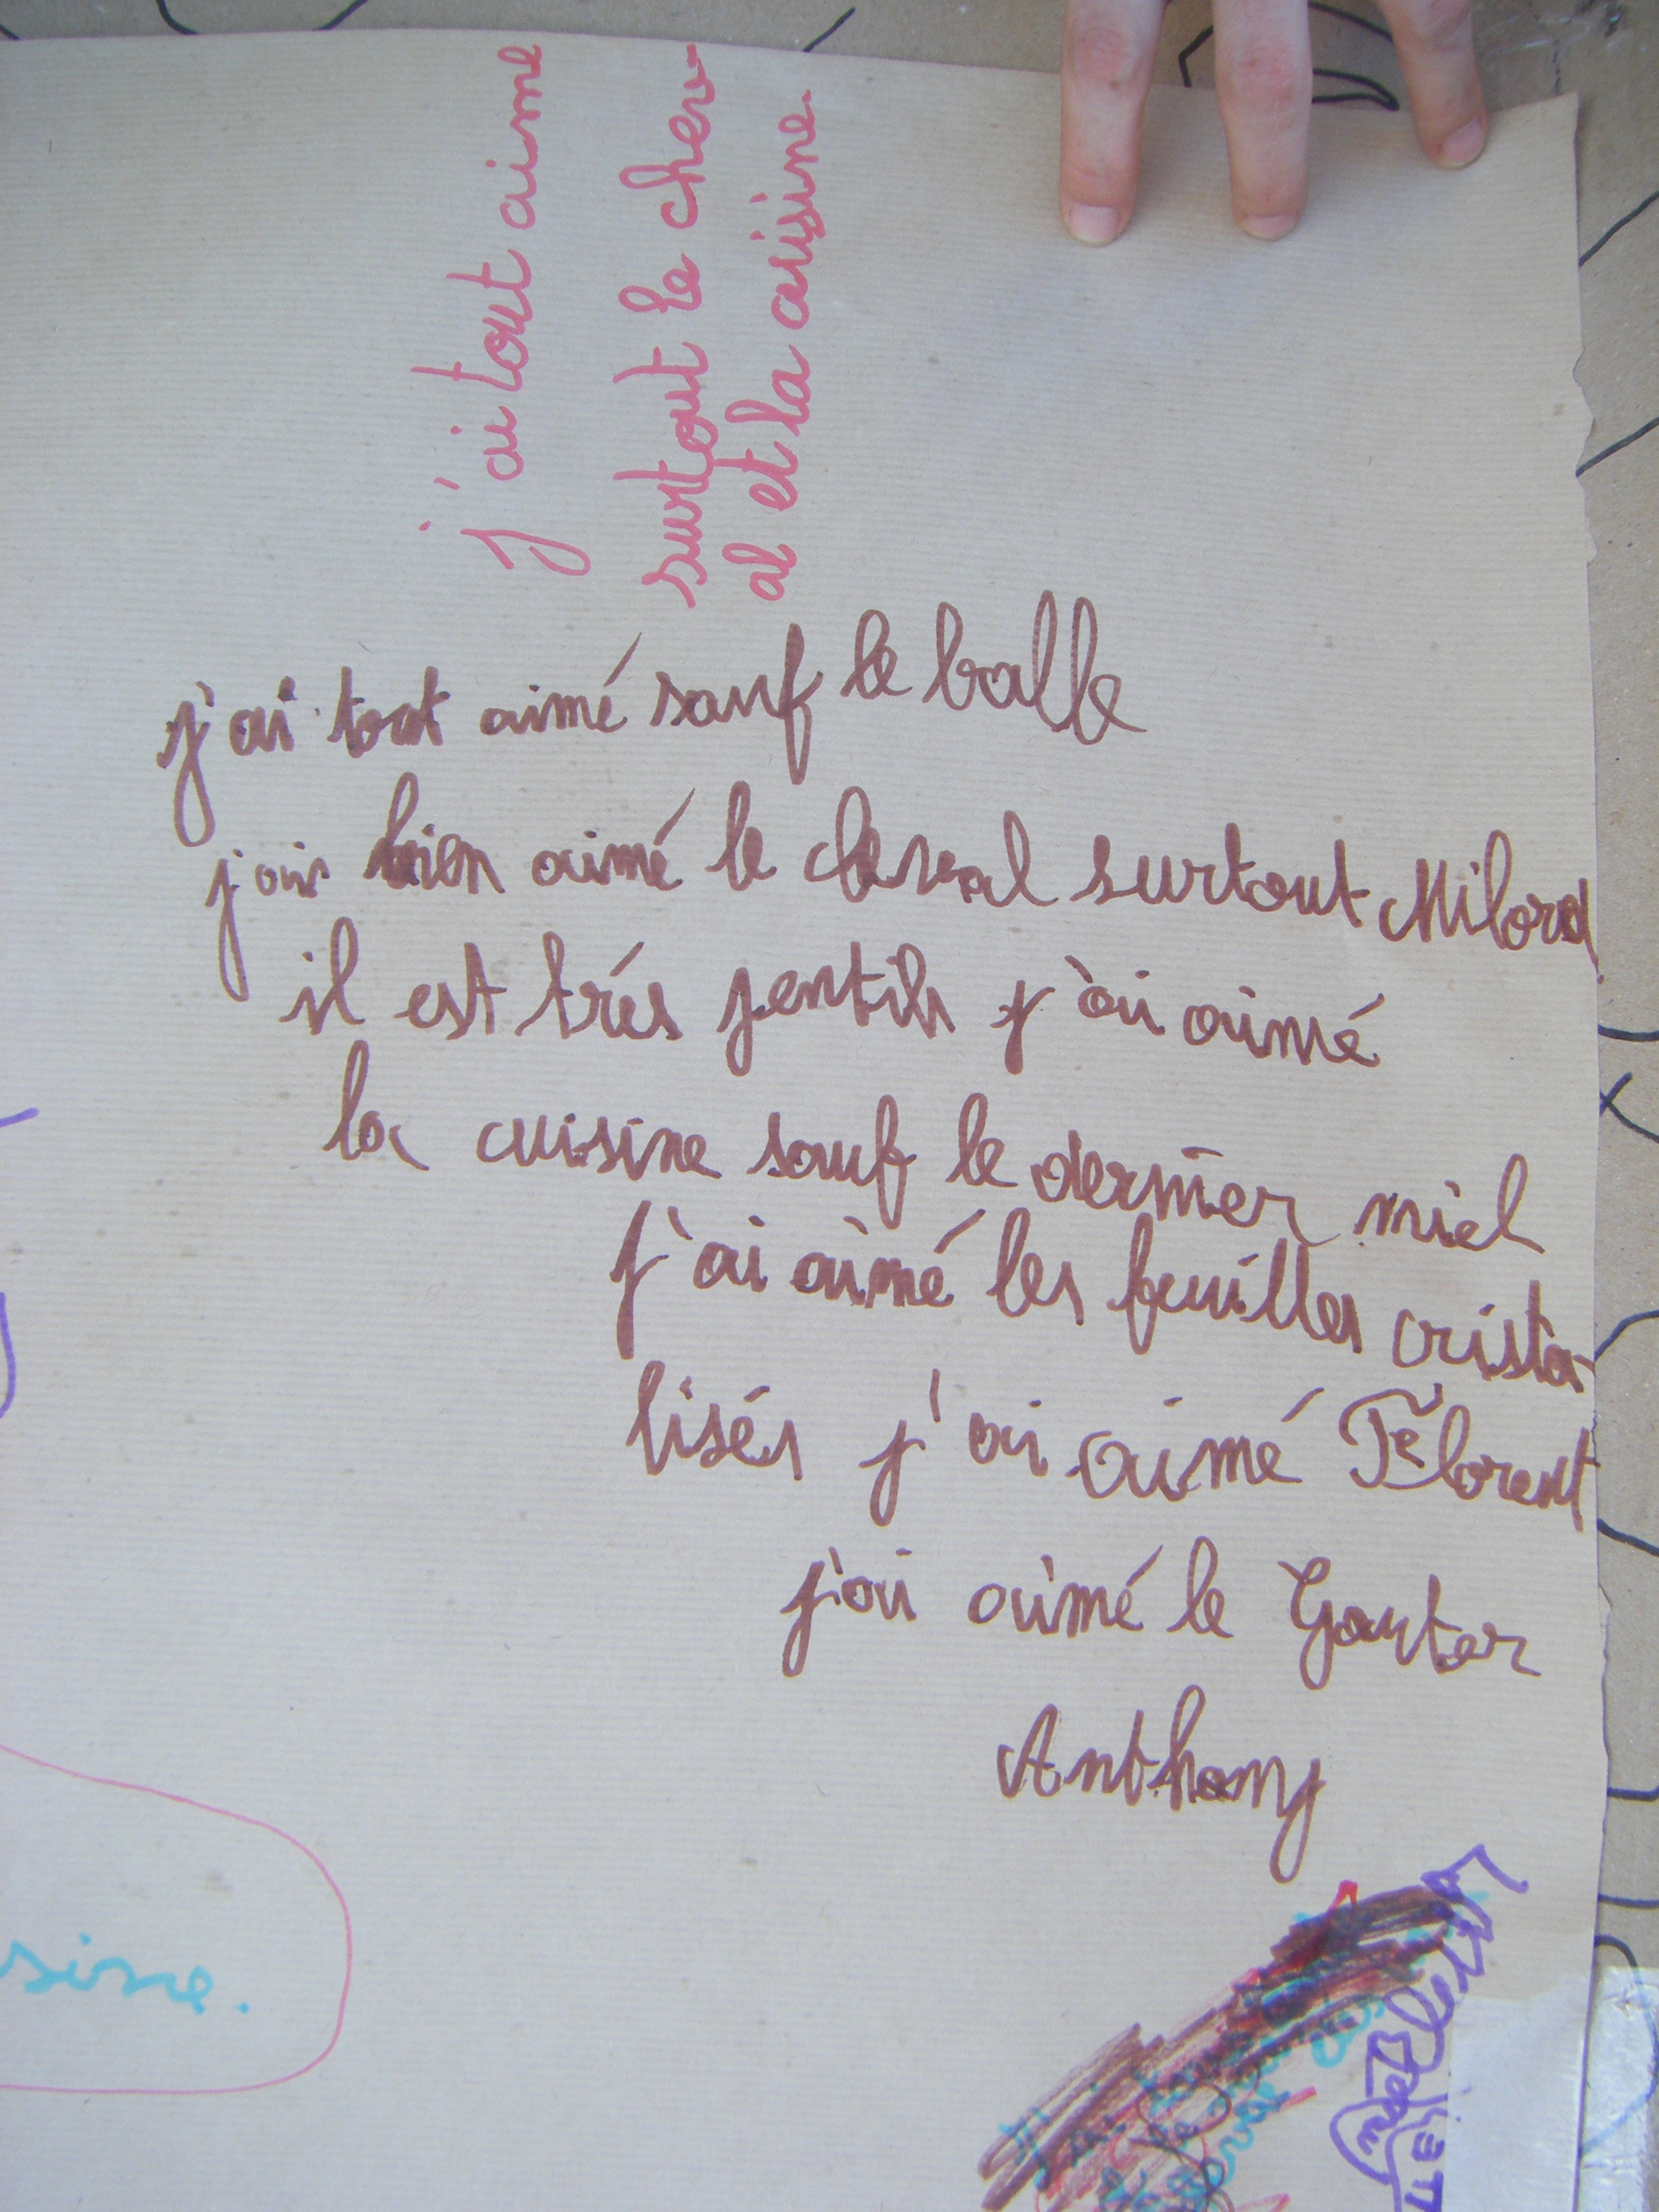 j'ai tout aime
surtout le chev
al et la cuisine.
j'ai tout aimé sauf le balle
j'ai bien aimé le cheval surtout Milord
il est trés jentils j'ai aimé
la cuisine sauf le dernier miel
j'ai aimé les feuilles crista-
lisés j'ai aimé Florent
j'ai aimé le Gouter
Anthony
sine.